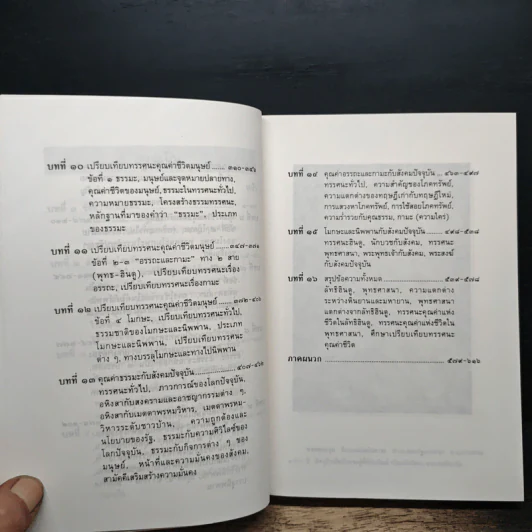 บทที่ ๑๐ เปรียบเทียบทรรศนะคุณค่าชีวิตมนุษย์ ...... ๓๑๐-๓๔๖
ข้อที่ ๑ ธรรมะ, มนุษย์และจุดหมายปลายทาง,
คุณค่าชีวิตของมนุษย์, ธรรมะในทรรศนะทั่วไป,
ความหมายธรรมะ, โครงสร้างธรรมทรรศนะ,
หลักฐานที่มาของคำว่า "ธรรมะ", ประเภท
ของธรรมะ
บทที่ ๑๑ เปรียบเทียบทรรศนะคุณค่าชีวิตมนุษย์ ...... ๓๔๗-๓๗๑
ข้อที่ ๒-๓ "อรรถะและกามะ" ทาง ๒ สาย
(พุทธ-ฮินดู), เปรียบเทียบทรรศนะเรื่อง
อรรถะ, เปรียบเทียบทรรศนะเรื่องกามะ
บทที่ ๑๒ เปรียบเทียบทรรศนะคุณค่าชีวิตมนุษย์ ......
ข้อที่ ๔ โมกษะ, โมกษะและนิพพาน,
ธรรมชาติของโมกษะและนิพพาน, ประเภท
โมกษะและนิพพาน, เปรียบเทียบทรรศนะ
ต่าง ๆ, ทางบรรลุโมกษะและทางไปนิพพาน
บทที่ ๑๓ คุณค่าธรรมะกับสังคมปัจจุบัน
ทรรศนะทั่วไป, ภาวการณ์ของโลกปัจจุบัน,
อหิงสากับสงครามและอาชญากรรมต่าง ๆ,
อหิงสากับเมตตาพรหมวิหาร, เมตตาพรหม-
วิหารระดับชาวบ้าน, ความถูกต้องและ
นโยบายของรัฐ, ธรรมะกับความศิวิไลซ์ของ
โลกปัจจุบัน, ธรรมะกับกิจการต่าง ๆ ของ
มนุษย์, หน้าที่และความมั่นคงของสังคม,
สามัคคีเสริมสร้างความมั่นคง
บทที่ ๑๔ คุณค่าอรรถะและกามะกับสังคมปัจจุบัน .. ๔๖๓-๔๙๗
ทรรศนะทั่วไป, ความสำคัญของโภคทรัพย์,
ความแตกต่างของทฤษฎีเก่ากับทฤษฎีใหม่,
การแสวงหาโภคทรัพย์, การใช้สอยโภคทรัพย์,
ความร่ำรวยกับคุณธรรม, กามะ (ความใคร่)
บทที่ ๑๕ โมกษะและนิพพานกับสังคมปัจจุบัน ... ๔๙๘-๕๓๓
ทรรศนะฮินดู, นักบวชกับสังคม, ทรรศนะ
พุทธศาสนา, พระพุทธเจ้ากับสังคม, พระสงฆ์
กับสังคมปัจจุบัน
บทที่ ๑๖ สรุปข้อความทั้งหมด ...... ๕๓๔-๕๗๘
ลัทธิฮินดู, พุทธศาสนา, ความแตกต่าง
ระหว่างหินยานและมหายาน, พุทธศาสนา
แตกต่างจากลัทธิฮินดู, ทรรศนะคุณค่าแห่ง
ชีวิตในลัทธิฮินดู, ทรรศนะคุณค่าแห่งชีวิตใน
พุทธศาสนา, ศึกษาเปรียบเทียบทรรศนะ
คุณค่าชีวิต
ภาคผนวก ...... ๕๗๙-๖๑๖